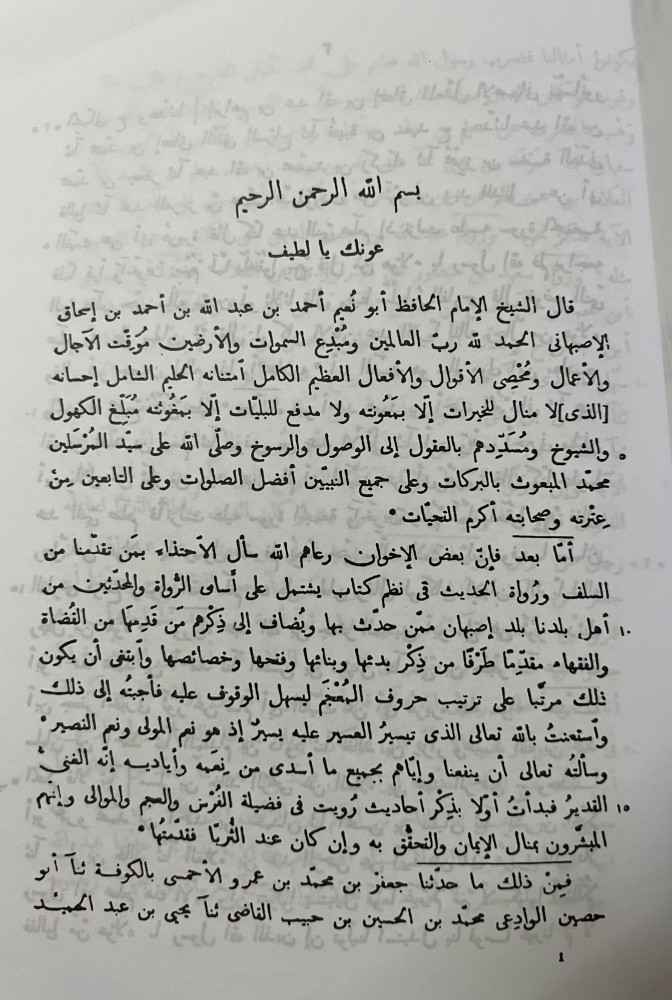 بسم الله الرحمن الرحيم
عونك يا لطيف
قال الشيخ الإمام الحافظ أبو نُعيم أحمد بن عبد الله بن أحمد بن إسحاق
الإصبهانى الحمد لله ربّ العالمين ومُبْدِع السموات والأرضين مُوَقِّت الآجال
والأعمال ومُحْصِى الأقوال والأفعال العظيم الكامل آمتنانه الحليم الشامل إحسانه
[الذى] لا منال للخيرات إلّا بمَعُونته ولا مدفع للبليّات إلّا بمَغُوثته مُبَلِّغ الكهول
٥ والشيوخ ومُسَدِّدهم بالعقول إلى الوصول والرسوخ وصلّى الله على سيّد المُرْسَلين
محمّد المبعوث بالبركات وعلى جميع النبيّين أفضل الصلوات وعلى التابعين مِنْ
عِتْرته وصحابته أكرم التحيّات ٠
أمّا بعد فإنّ بعض الإخوان رعاهم الله سأل الآحتذاء بمَن تقدّمنا من
السلف ورُواة الحديث فى نظم كتاب يشتمل على أسامى الرُّواة والمحدّثين من
١٠ أهل بلدنا بلد إصبهان ممّن حدّث بها ويُضاف إلى ذِكْرهم مَن قَدِمها من القُضاة
والفقهاء مقدِّمًا طَرَفًا من ذِكْر بدئها وبنائها وفتحها وخصائصها وآبتغى أن يكون
ذلك مرتّبا على ترتيب حروف المُعْجَم ليسهل الوقوف عليه فأجبتُه إلى ذلك
وآستعنتُ بالله تعالى الذى تيسيرُ العسير عليه يسيرٌ إذ هو نعم المولى ونعم النصير ٠
وسألتُه تعالى أن ينفعنا وإيّاهم بجميع ما أسدى من نِعَمه وأياديه إنّه الغنىّ
١٥ القديرُ فبدأتُ أوّلا بذِكْر أحاديث رُويت فى فضيلة الفُرْس والعجم والموالى وإنهم
المبشَّرون بمنال الإيمان والتحقُّق به وإن كان عند الثُّريّا فقدّمتُها ٠
فمِنْ ذلك ما حدّثنا جعفر بن محمّد بن عمرو الأحمسى بالكوفة ثنآ أبو
حصين الوادعى محمّد بن الحسين بن حبيب القاضى ثنآ يحيى بن عبد الحميد
1